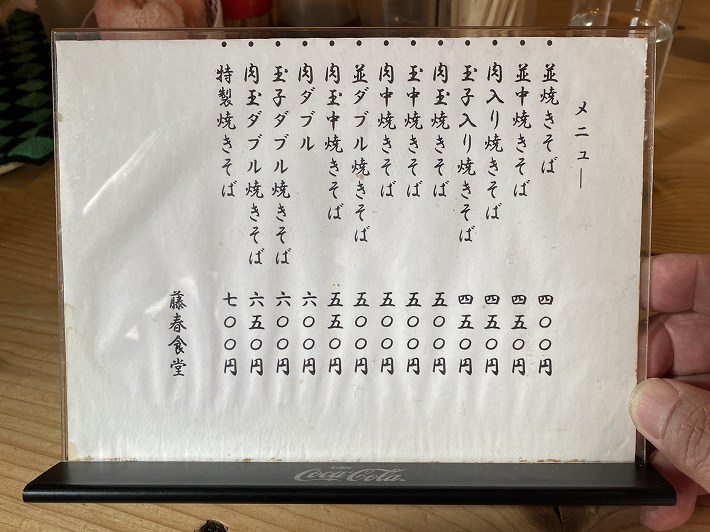 メニュー
・並焼きそば 四〇〇円
・並中焼きそば 四五〇円
・肉入り焼きそば 四五〇円
・玉子入り焼きそば 四五〇円
・肉玉焼きそば 五〇〇円
・玉中焼きそば 五〇〇円
・肉中焼きそば 五〇〇円
・並ダブル焼きそば 五〇〇円
・肉玉中焼きそば 五五〇円
・肉ダブル 六〇〇円
・玉子ダブル焼きそば 六〇〇円
・肉玉ダブル焼きそば 六五〇円
・特製焼きそば 七〇〇円
藤春食堂
ENJOY
Coca-Cola